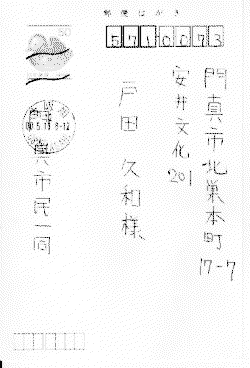 郵便はがき
5710073
門真市北巣本町
17-7
安井文化201
戸田久和様
門真市民一同
50
8-12